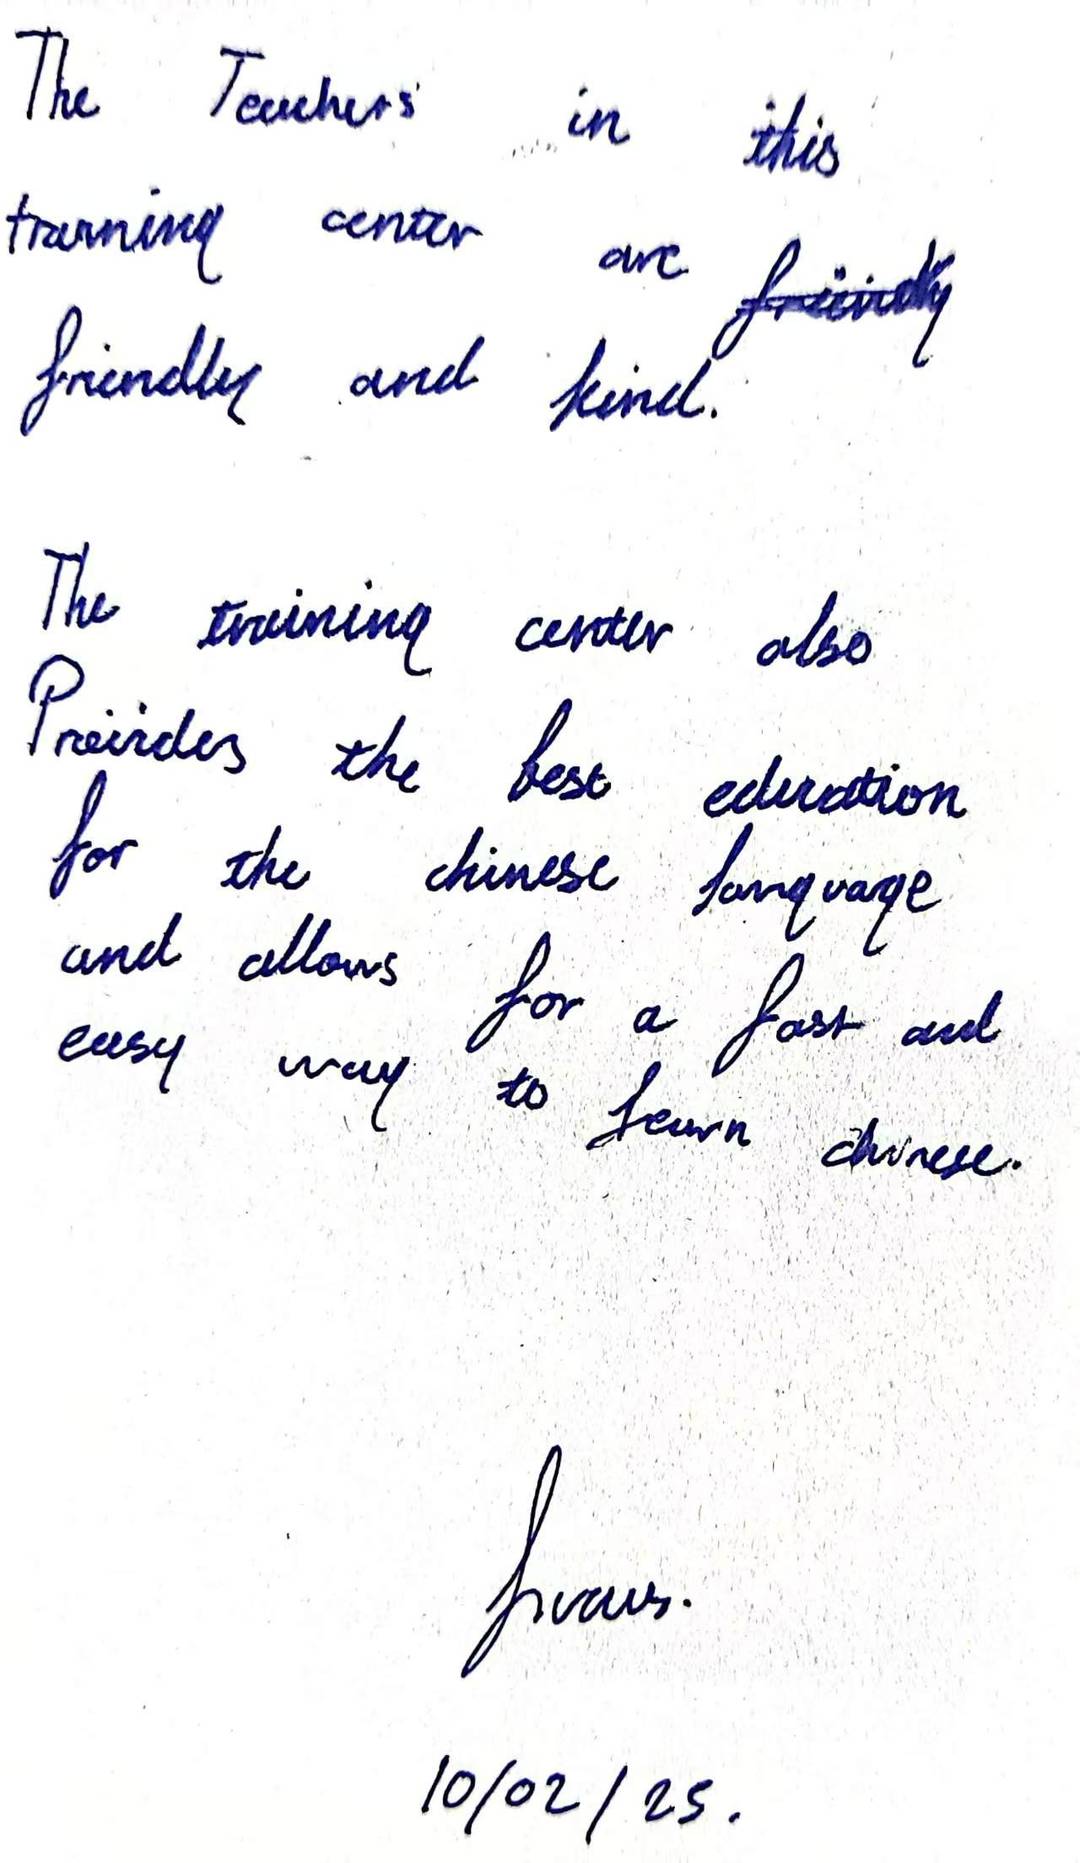 The Teachers in this
training center are
friendly and kind.
The training center also
Provides the best education
for the chinese language
and allows for a fast and
easy way to learn chinese.
10/02/25.